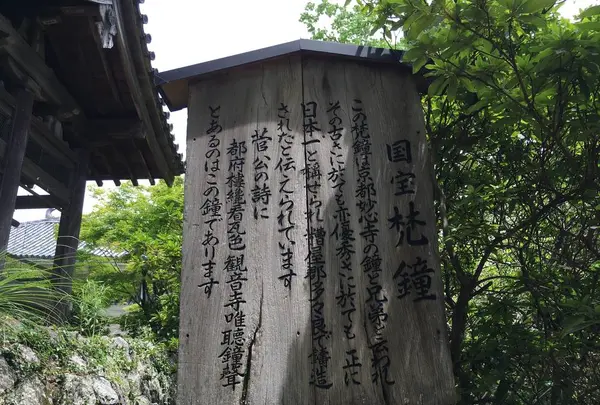 国宝 梵鐘
この梵鐘は京都妙心寺の鐘と兄弟と云われ
その古さに於ても亦優秀さに於ても正に
日本一と称せられ 糟屋郡多々良で鋳造
されだと伝えられています
菅公の詩に
都府楼纔看瓦色 観音寺唯聴鐘聲
とあるのはこの鐘であります